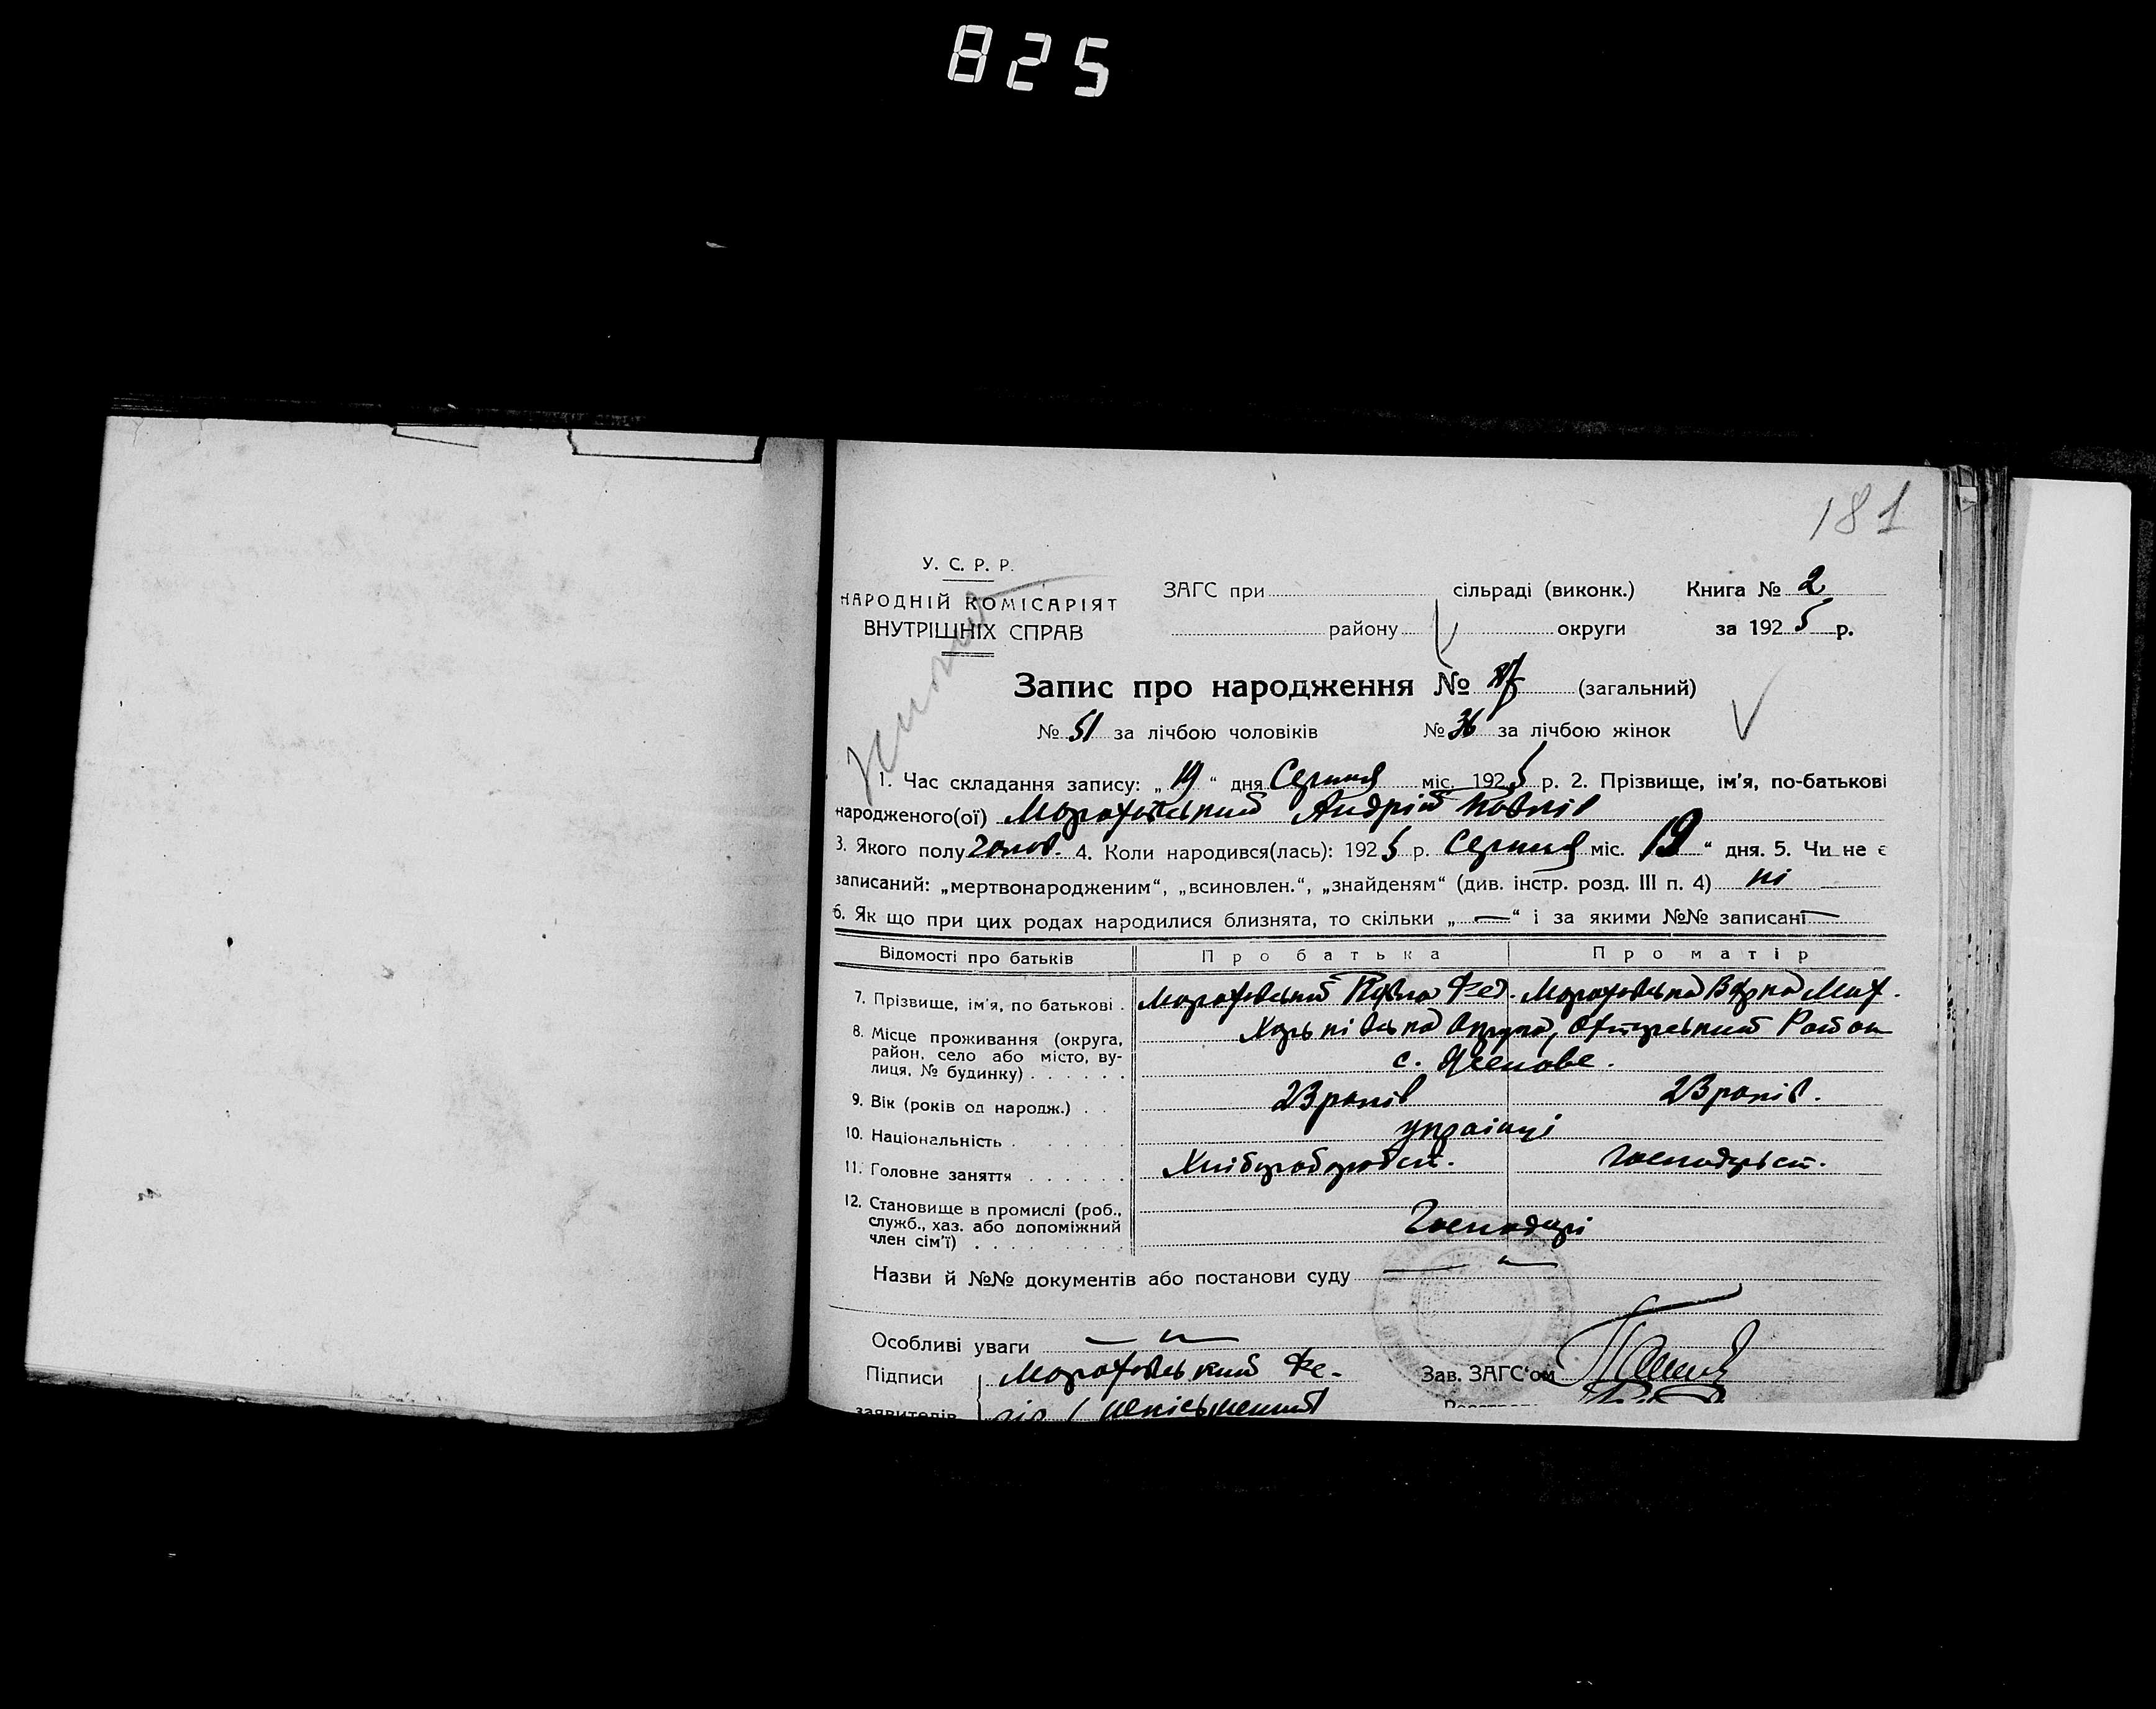 825
181
У. С. Р. Р.
НАРОДНІЙ КОМІСАРІЯТ
ВНУТРІШНІХ СПРАВ
ЗАГС при сільраді (виконк.) Книга № 2
району округи за 1925 р.
Запис про народження № 87 (загальний)
№ 51 за лічбою чоловіків № 36 за лічбою жінок
1. Час складання запису: „19“ дня Серпня міс. 1925 р. 2. Прізвище, ім'я, по-батькові
народженого(ої) Мораховський Андрій Павлів
3. Якого полу Чолов. 4. Коли народився(лась): 1925 р. Серпня міс. 19“ дня. 5. Чи не є
записаний: „мертвонародженим“, „всиновлен.“, „знайденям“ (див. інстр. розд. III п. 4) ні
6. Як що при цих родах народилися близнята, то скільки „—“ і за якими №№ записані —
Відомості про батьків Про батька Про матір
7. Прізвище, ім'я, по батькові . Мораховський Павло Фед. Мораховська Мих.
8. Місце проживання (округа,
район, село або місто, ву-
лиця, № будинку) . . . . . .
Харьківська Округа, Район
с. Ясенове.
9. Вік (років од народж.) . . 23 років 23 років.
10. Національність . . . . . . українці
11. Головне заняття . . . . . . Хліборобст. Господарст.
12. Становище в промислі (роб.,
служб., хаз. або допоміжний
член сім'ї) . . . . . . . .
Господарі
Назви й №№ документів або постанови суду — " —
Особливі уваги — " —
Підписи Мораховський Фе- Зав. ЗАГС'ом
заявителів неписьменний